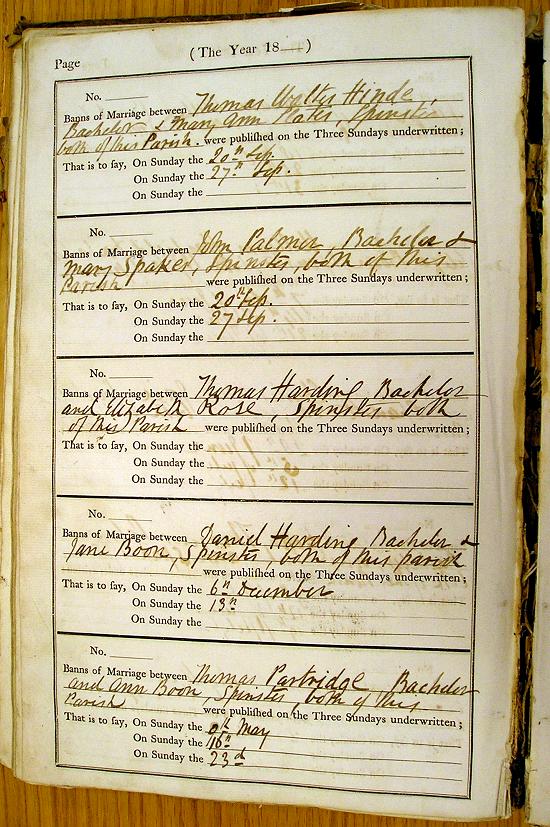 Page
(The Year 18 — )
No.
Banns of Marriage between Thomas Walter Hinde,
Bachelor & Mary Ann Slater, Spinster
both of this Parish. were publiſhed on the Three Sundays underwritten;
That is to ſay, On Sunday the 20th Sep.
On Sunday the 27th Sep.
On Sunday the
No.
Banns of Marriage between John Palmer, Bachelor &
Mary Spaker, Spinster, both of this
Parish were publiſhed on the Three Sundays underwritten;
That is to ſay, On Sunday the 20th Sep.
On Sunday the 27 Sep.
On Sunday the
No.
Banns of Marriage between Thomas Harding Bachelor
and Elizabeth Rose, Spinster both
of this Parish were publiſhed on the Three Sundays underwritten;
That is to ſay, On Sunday the
On Sunday the
On Sunday the
No.
Banns of Marriage between Daniel Harding Bachelor &
Jane Boon, Spinster, both of this parish
were publiſhed on the Three Sundays underwritten;
That is to ſay, On Sunday the 6th December
On Sunday the 13th
On Sunday the
No.
Banns of Marriage between Thomas Partridge Bachelor
and Ann Boon, Spinster, both of this
Parish were publiſhed on the Three Sundays underwritten;
That is to ſay, On Sunday the May
On Sunday the 16th
On Sunday the 23d